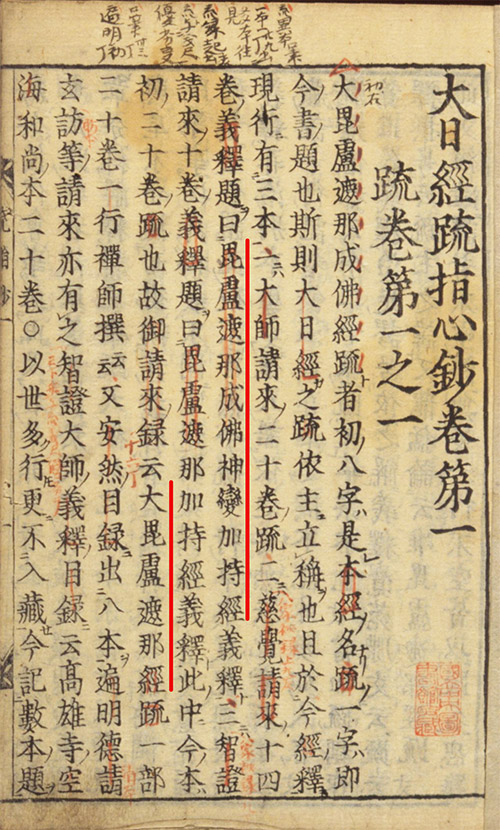 大日經疏指心鈔卷第一
疏卷第一之一
大毘盧遮那成佛經疏者初八字是本經名疏一字卽
今書題也斯則大日經之疏依主立稱也且於今經釋
現行有三本一大師請來二十卷疏二慈覺請來十四
卷義釋題曰毘盧遮那成佛神變加持經義釋三智證
請來十卷義釋題曰毘盧遮那加持經義釋此中今本
初二十卷疏也故御請來録云大毘盧遮那經疏一部
二十卷一行禪師撰云云又安然目録出八本遍明德請
玄訪等請來亦有之智證大師義釋目録云髙雄寺空
海和尚本二十卷○以世多行更不入藏今記數本題